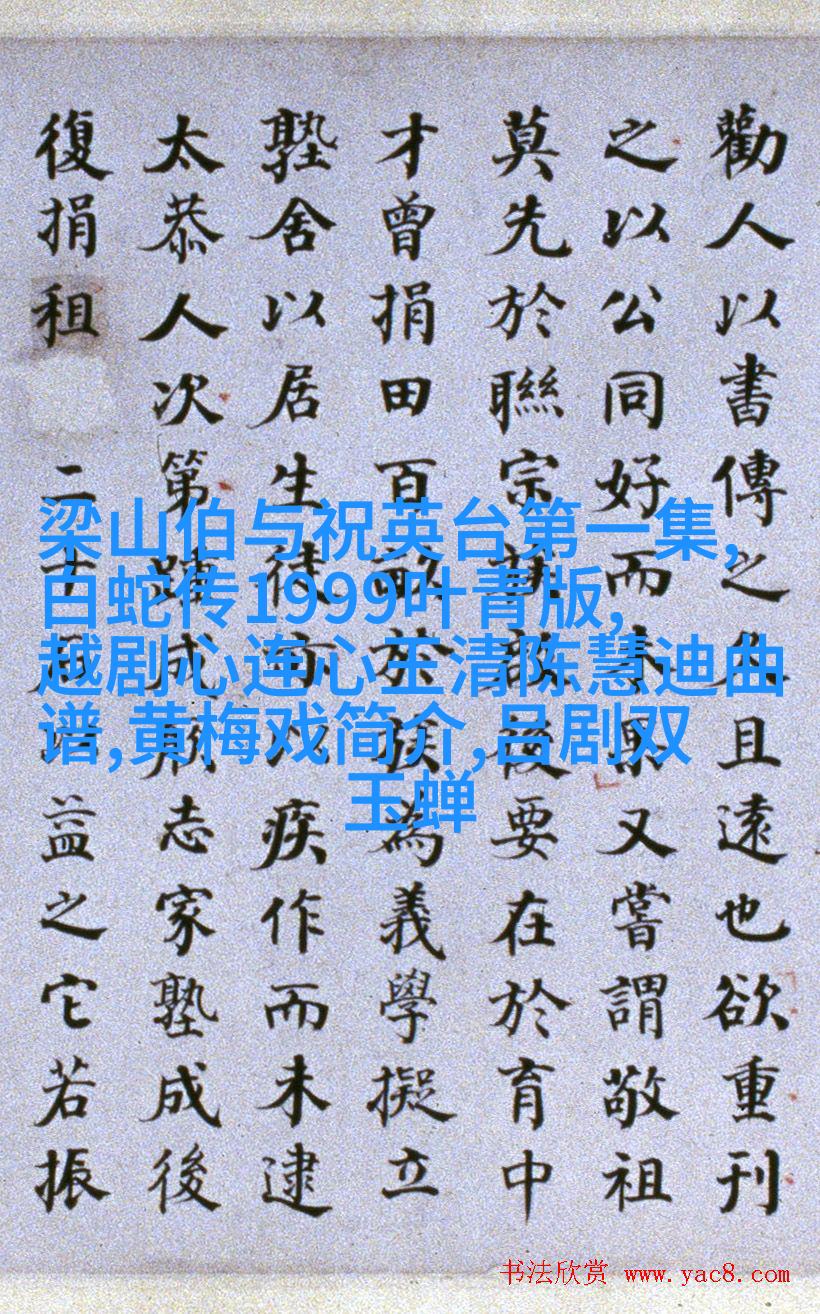 勸人以書傳之久且遠也欲重刊
之以公同好而未果又嘗謂敬祖
莫先於聯宗後要在於育中
才曾捐田百畝於族為義學擬立
塾舍以居生徒疾作而未逮
太恭人次第踵成厥志家塾成後
復捐租二十益之它若振
梁山伯与祝英台第一集,
白蛇传1999叶青版,
越剧心连心王清陈慧迪曲
谱,黄梅戏简介,吕剧双
玉蝉
书法欣赏 www.yac8.com